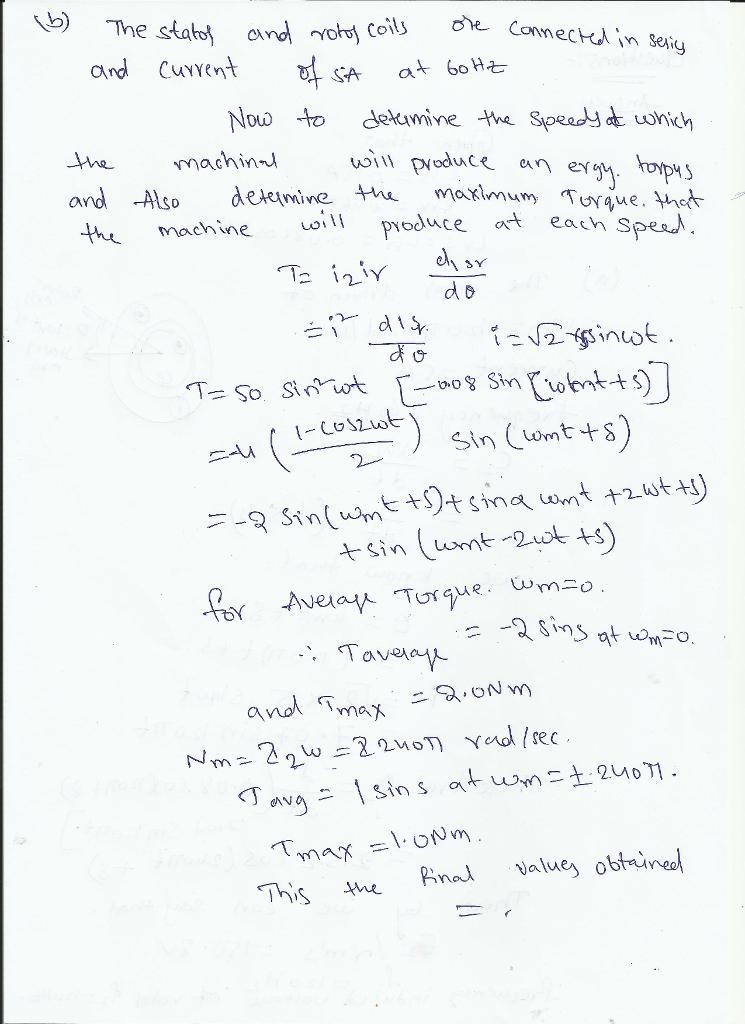 (b) The stator and rotor coils are connected in series
and current of 5A at 60Hz
Now to determine the speeds at which
the machine will produce an torpus
and Also determine the maximum Torque. that
the machine will produce at each speed.
T = i2 ir dLsr/dθ
= i² dLsr/dθ i = √2 sinωt.
T = 50 sin²ωt [-0.08 sin (ωmt + δ)]
= -4 (1-cos2ωt / 2) sin (ωmt + δ)
= -2 sin(ωmt + δ) + sin ωmt + 2ωt + δ)
+ sin (ωmt - 2ωt + δ)
for Average Torque. ωm=0.
∴ Taverage = -2 sinδ at ωm=0.
and Tmax = 2.0Nm
Nm = ± 2ω = ± 240π rad/sec.
Tavg = 1 sin δ at ωm = ± 240π.
Tmax = 1.0Nm.
This the final values obtained
= .